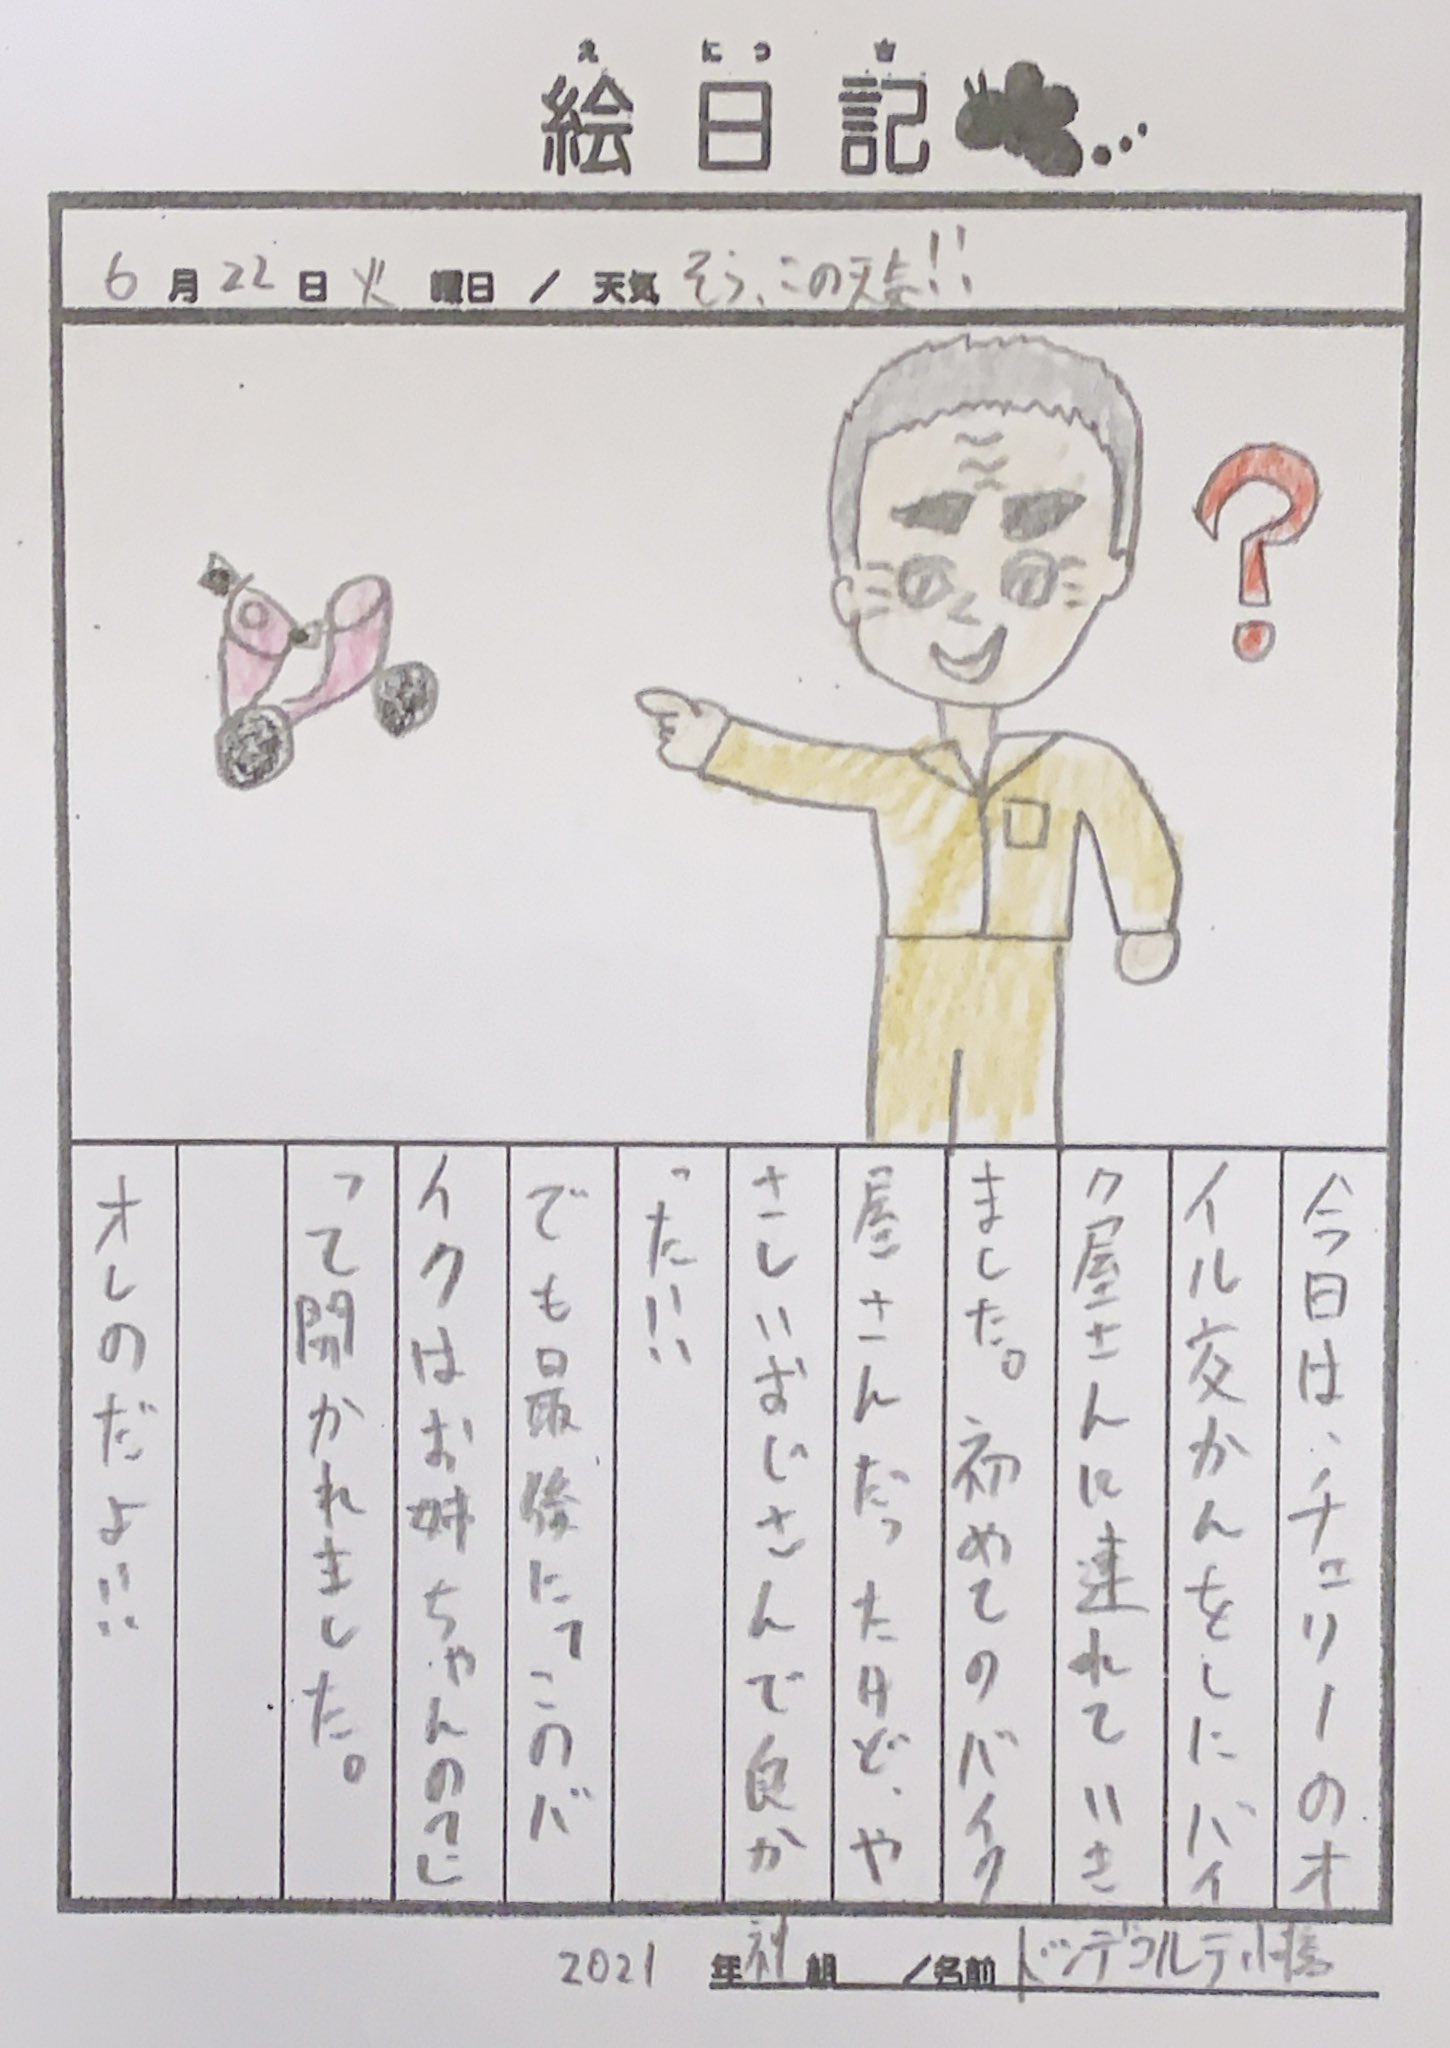 え にっ き
絵日記
6月22日火曜日/天気 そう、この天気!!
今日は、チェリーのオ
イル交かんをしにバイ
ク屋さんに連れていき
ました。初めてのバイク
屋さんだったけど、や
さしいおじさんで良か
った!!
でも最後に「このバ
イクはお姉ちゃんの?」
って聞かれました。
オレのだよ!!
2021年 組/名前 ドンデコルテ小橋